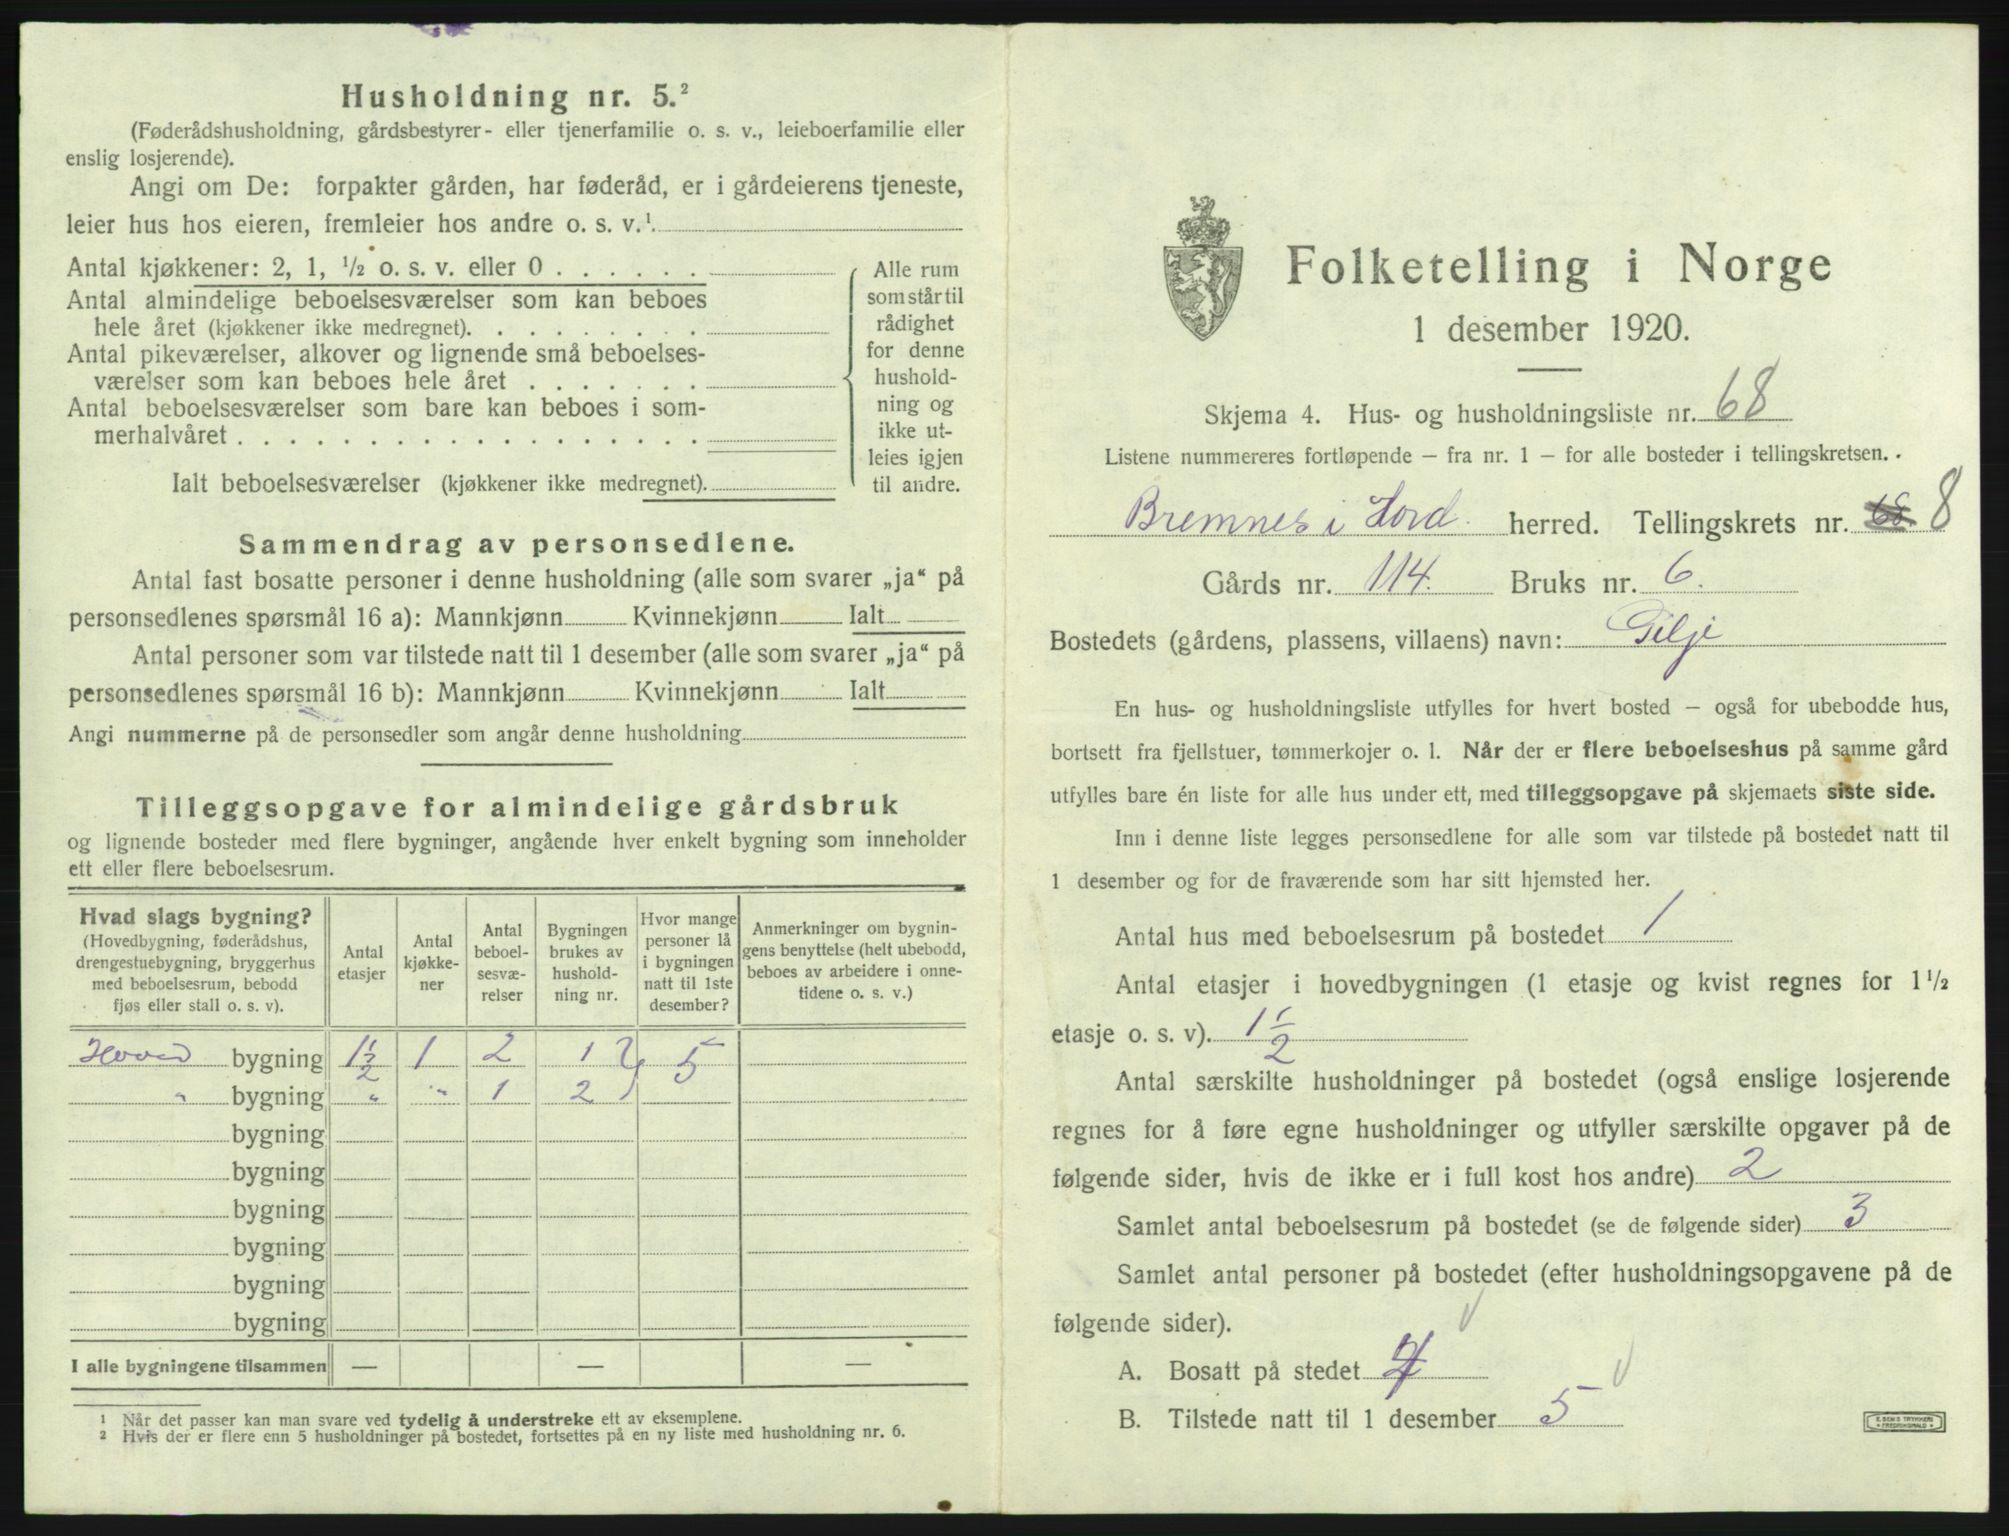 Husholdning nr. 5.²
(Føderådshusholdning, gårdsbestyrer- eller tjenerfamilie o. s. v., leieboerfamilie eller
enslig losjerende).
Angi om De: forpakter gården, har føderåd, er i gårdeierens tjeneste,
leier hus hos eieren, fremleier hos andre o. s. v.¹
Antal kjøkkener: 2, 1, ½ o. s. v. eller 0
Antal almindelige beboelsesværelser som kan beboes
hele året (kjøkkener ikke medregnet).
Antal pikeværelser, alkover og lignende små beboelses-
værelser som kan beboes hele året
Antal beboelsesværelser som bare kan beboes i som-
merhalvåret
Ialt beboelsesværelser (kjøkkener ikke medregnet).
Alle rum
som står til
rådighet
for denne
hushold-
ning og
ikke ut-
leies igjen
til andre.
Sammendrag av personsedlene.
Antal fast bosatte personer i denne husholdning (alle som svarer „ja“ på
personsedlenes spørsmål 16 a): Mannkjønn Kvinnekjønn Ialt
Antal personer som var tilstede natt til 1 desember (alle som svarer „ja“ på
personsedlenes spørsmål 16 b): Mannkjønn Kvinnekjønn Ialt
Angi nummerne på de personsedler som angår denne husholdning
Tilleggsopgave for almindelige gårdsbruk
og lignende bosteder med flere bygninger, angående hver enkelt bygning som inneholder
ett eller flere beboelsesrum.
Hvad slags bygning?
(Hovedbygning, føderådshus,
drengestuebygning, bryggerhus
med beboelsesrum, bebodd
fjøs eller stall o. s. v).
Antal
etasjer
Antal
kjøkke-
ner
Antal
beboel-
sesvæ-
relser
Bygningen
brukes av
hushold-
ning nr.
Hvor mange
personer lå
i bygningen
natt til 1ste
desember?
Anmerkninger om bygnin-
gens benyttelse (helt ubebodd,
beboes av arbeidere i onne-
tidene o. s. v.)
Hoved bygning 1½ 1 2 1 } 5
" bygning " " 1 2
bygning
bygning
bygning
bygning
bygning
bygning
I alle bygningene tilsammen — — —
¹ Når det passer kan man svare ved tydelig å understreke ett av eksemplene.
² Hvis der er flere enn 5 husholdninger på bostedet, fortsettes på en ny liste med husholdning nr. 6.
Folketelling i Norge
1 desember 1920.
Skjema 4. Hus- og husholdningsliste nr. 68
Listene nummereres fortløpende – fra nr. 1 – for alle bosteder i tellingskretsen.
Bremnes i Hord. herred. Tellingskrets nr. 68. 8
Gårds nr. 114. Bruks nr. 6.
Bostedets (gårdens, plassens, villaens) navn: Gilje
En hus- og husholdningsliste utfylles for hvert bosted – også for ubebodde hus,
bortsett fra fjellstuer, tømmerkojer o. l. Når der er flere beboelseshus på samme gård
utfylles bare én liste for alle hus under ett, med tilleggsopgave på skjemaets siste side.
Inn i denne liste legges personsedlene for alle som var tilstede på bostedet natt til
1 desember og for de fraværende som har sitt hjemsted her.
Antal hus med beboelsesrum på bostedet 1
Antal etasjer i hovedbygningen (1 etasje og kvist regnes for 1½
etasje o. s. v). 1½
Antal særskilte husholdninger på bostedet (også enslige losjerende
regnes for å føre egne husholdninger og utfyller særskilte opgaver på de
følgende sider, hvis de ikke er i full kost hos andre) 2
Samlet antal beboelsesrum på bostedet (se de følgende sider) 3
Samlet antal personer på bostedet (efter husholdningsopgavene på de
følgende sider).
A. Bosatt på stedet
B. Tilstede natt til 1 desember 5